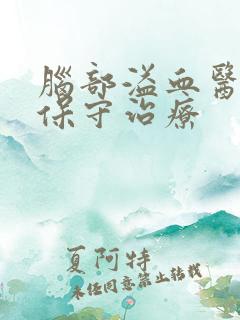 腦部溢血醫
保守治療
夏阿特
未任同意禁止轉載